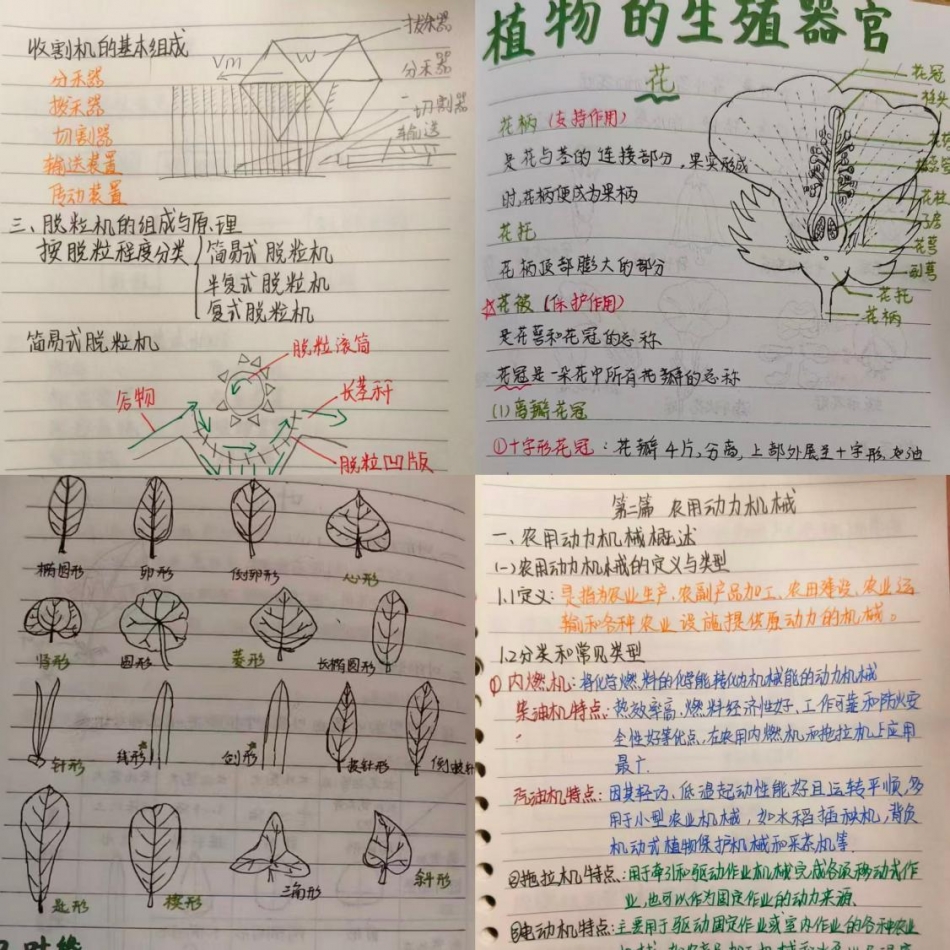 收割机的基本组成
分禾器
拨禾器
切割器
输送装置
传动装置
Vm
W
拔禾器
分禾器
切割器
输送
三、脱粒机的组成与原理
按脱粒程度分类
简易式脱粒机
半复式脱粒机
复式脱粒机
简易式脱粒机
脱粒滚筒
谷物
长茎禾秆
脱粒凹版
植物的生殖器官
花
花柄(支持作用)
是花与茎的连接部分,果实形成
时,花柄便成为果柄
花托
花柄顶部膨大的部分
花被(保护作用)
是花萼和花冠的总称
花冠是一朵花中所有花瓣的总称
(1)离瓣花冠
①十字形花冠:花瓣4片,分离,上部外展呈十字形,如油
花冠
柱头
花柱
子房
花萼
副萼
花托
花柄
椭圆形
卵形
倒卵形
心形
肾形
圆形
菱形
长椭圆形
针形
线形
剑形
披针形
倒披针
匙形
楔形
三角形
斜形
第二篇 农用动力机械
一、农用动力机械概述
(一)农用动力机械的定义与类型
1.1定义:是指为农业生产、农副产品加工、农田建设、农业运
输和各种农业设施提供原动力的机械。
1.2分类和常见类型
①内燃机:将化学燃料的化学能转化为机械能的动力机械
柴油机特点:热效率高、燃料经济性好、工作可靠和防火安
全性好等优点,在农用内燃机和拖拉机上应用
最广.
汽油机特点:因其轻巧、低温起动性能好且运转平顺,多
用于小型农业机械,如水稻插秧机,背负
机动式植物保护机械和采茶机等.
②拖拉机特点:用于牵引和驱动作业机械完成各项移动式作
业,也可以作为固定作业的动力来源.
③电动机特点:主要用于驱动固定作业或室内作业的各种农业